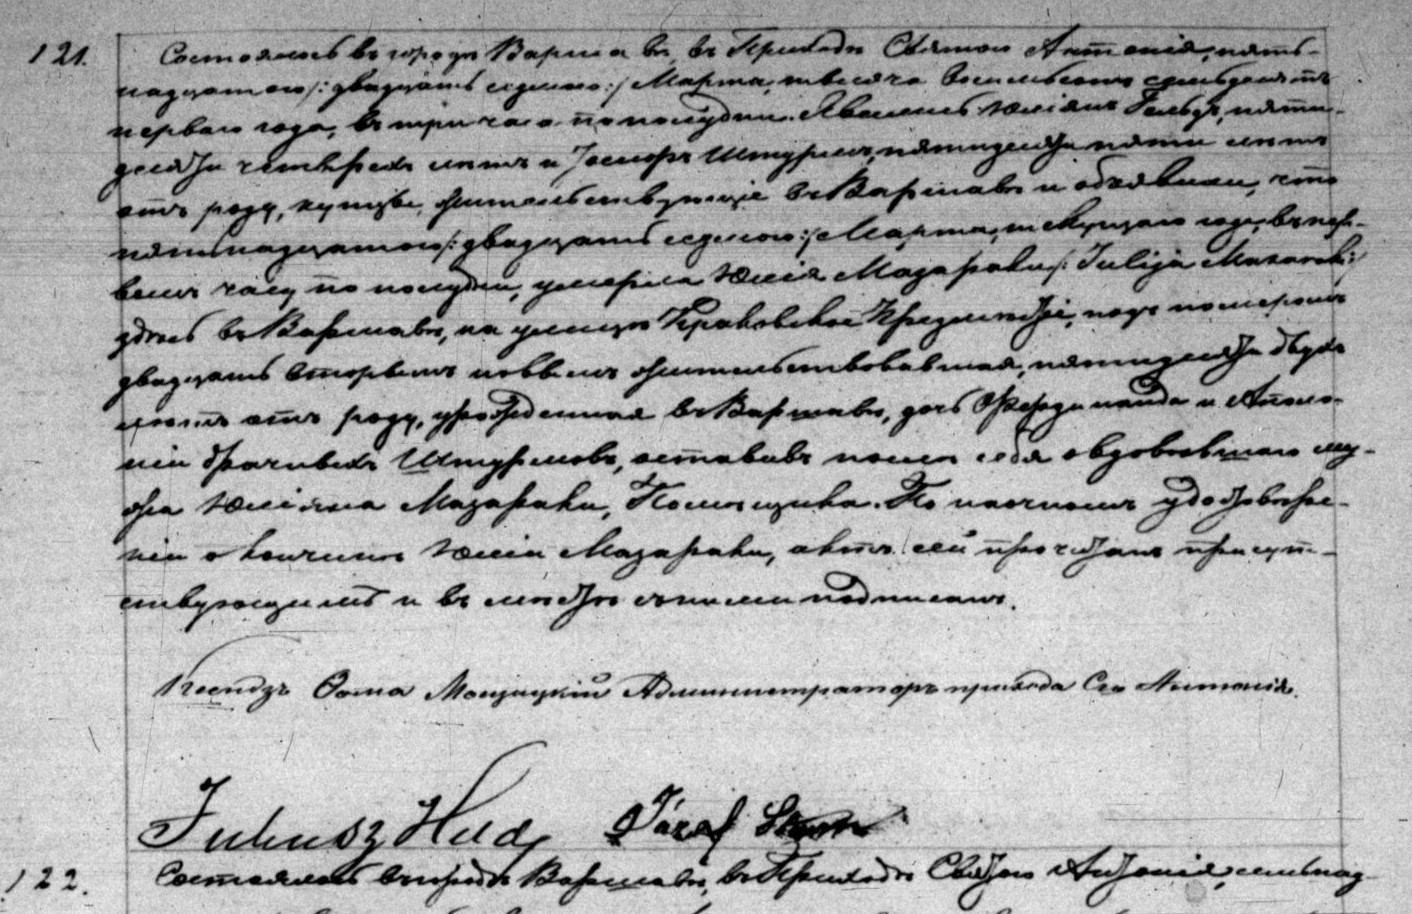 121.
Состоялось въ городѣ Варшавѣ, въ Приходѣ Святого Антонія, пят-
надцатаго /:двадцать седьмаго:/ Марта, тысяча восемьсотъ семьдесятъ
перваго года, въ три часа по полудни. Явились Юліянъ Гельдъ, пяти-
десяти четырехъ лѣтъ и Іосифъ Штурмъ, пятидесяти пяти лѣтъ
отъ роду, купцы, жительствующіе въ Варшавѣ и объявили, что
пятьнадцатаго /:двадцать седьмаго:/ Марта, текущаго года, въ пер-
вомъ часу по полудни, умерла Юлія Мазараки /:Julija Mazaraki:/
здѣсь въ Варшавѣ, на улицѣ Краковское Предмѣстіе, подъ номеромъ
двадцать вторымъ новымъ жительствовавшая, пятидесяти двухъ
лѣтъ отъ роду, урожденная въ Варшавѣ, дочь Фердинанда и Аполо-
ніи брачныхъ Штурмовъ, оставивъ послѣ себя овдовѣвшаго му-
жа Юліяна Мазараки, Помѣщика. По наочномъ удостовѣре-
ніи о кончинѣ Юліи Мазараки, актъ сей прочитанъ присут-
ствующимъ и въ мѣстѣ съ ними подписанъ.
Ксендзъ Ѳома Мощицкій Администраторъ прихода Сго Антонія.
Juliusz Held Józef Sturm
122.
Состоялось въ городѣ Варшавѣ, въ Приходѣ Святого Антонія, семьнад-